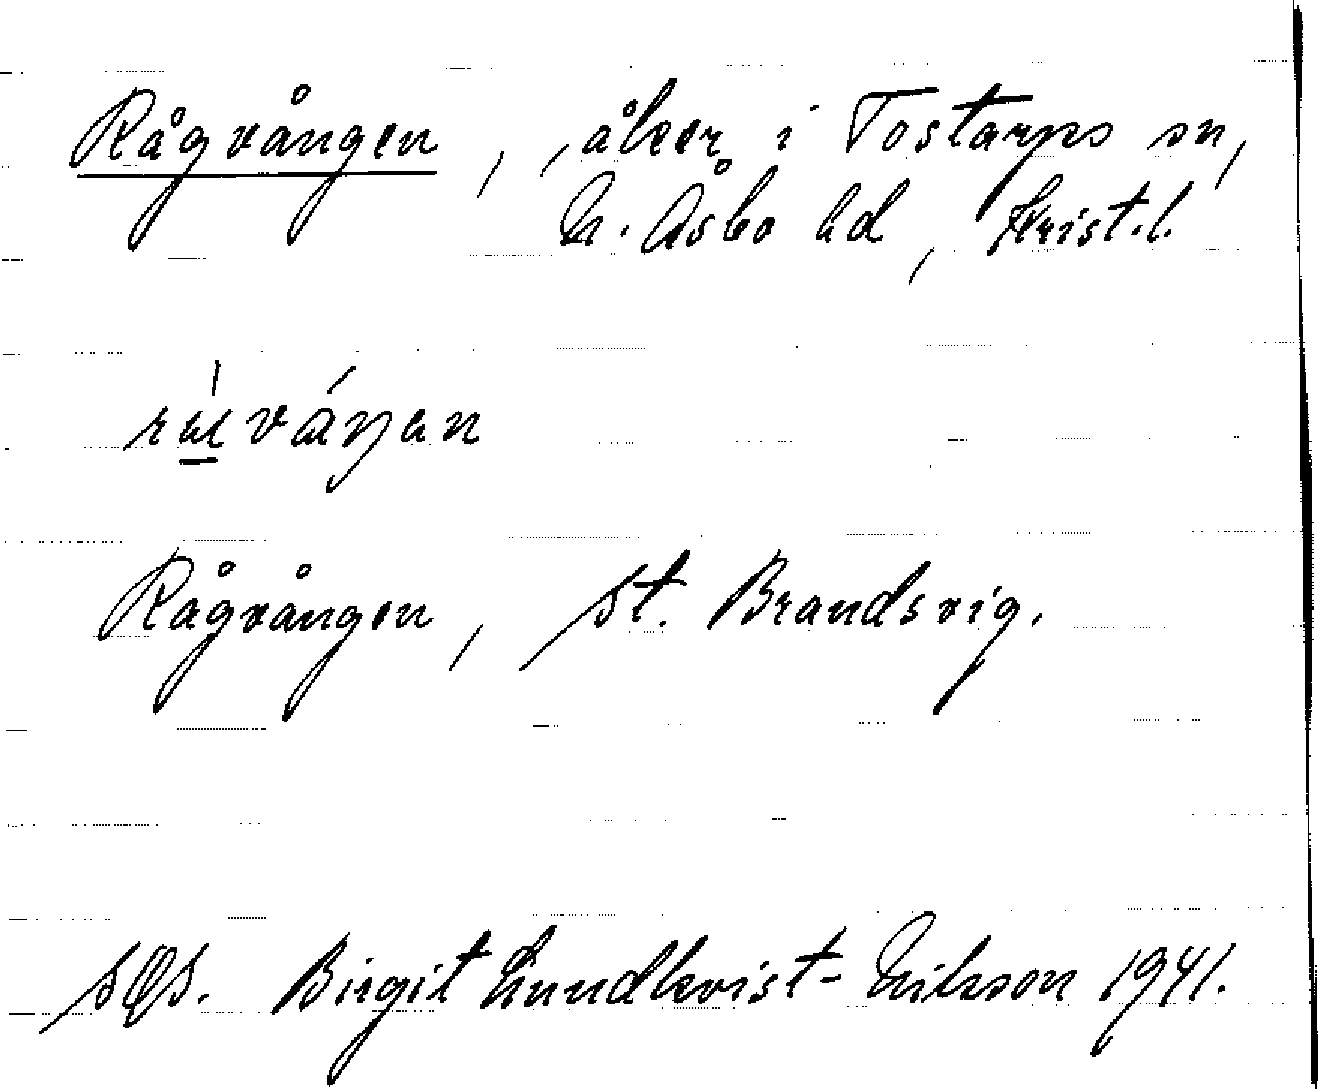 Rågvången, åker i Tostarps sn,
N. Åsbo hd, Krist.l.
Rågvången, St. Brandsvig.
SOS. Birgit Lundkvist-Nilsson 1941.